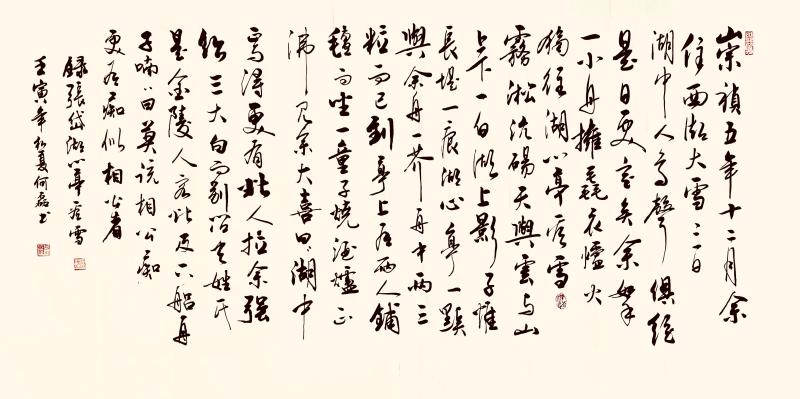 崇禎五年十二月余
住西湖大雪三日
湖中人鳥聲俱絕
是日更定矣余拏
一小舟擁毳衣爐火
獨往湖心亭看雪
霧淞沆碭天與雲與山
上下一白湖上影子惟
長堤一痕湖心亭一點
與余舟一芥舟中兩三
粒而已到亭上有兩人鋪
氈而坐一童子燒酒爐正
沸見余大喜曰湖中
焉得更有此人拉余強
飲三大白而別問其姓氏
是金陵人客此及下船舟
子喃喃曰莫說相公痴
更有痴似相公者
錄張岱湖心亭看雪
壬寅年初夏何磊書